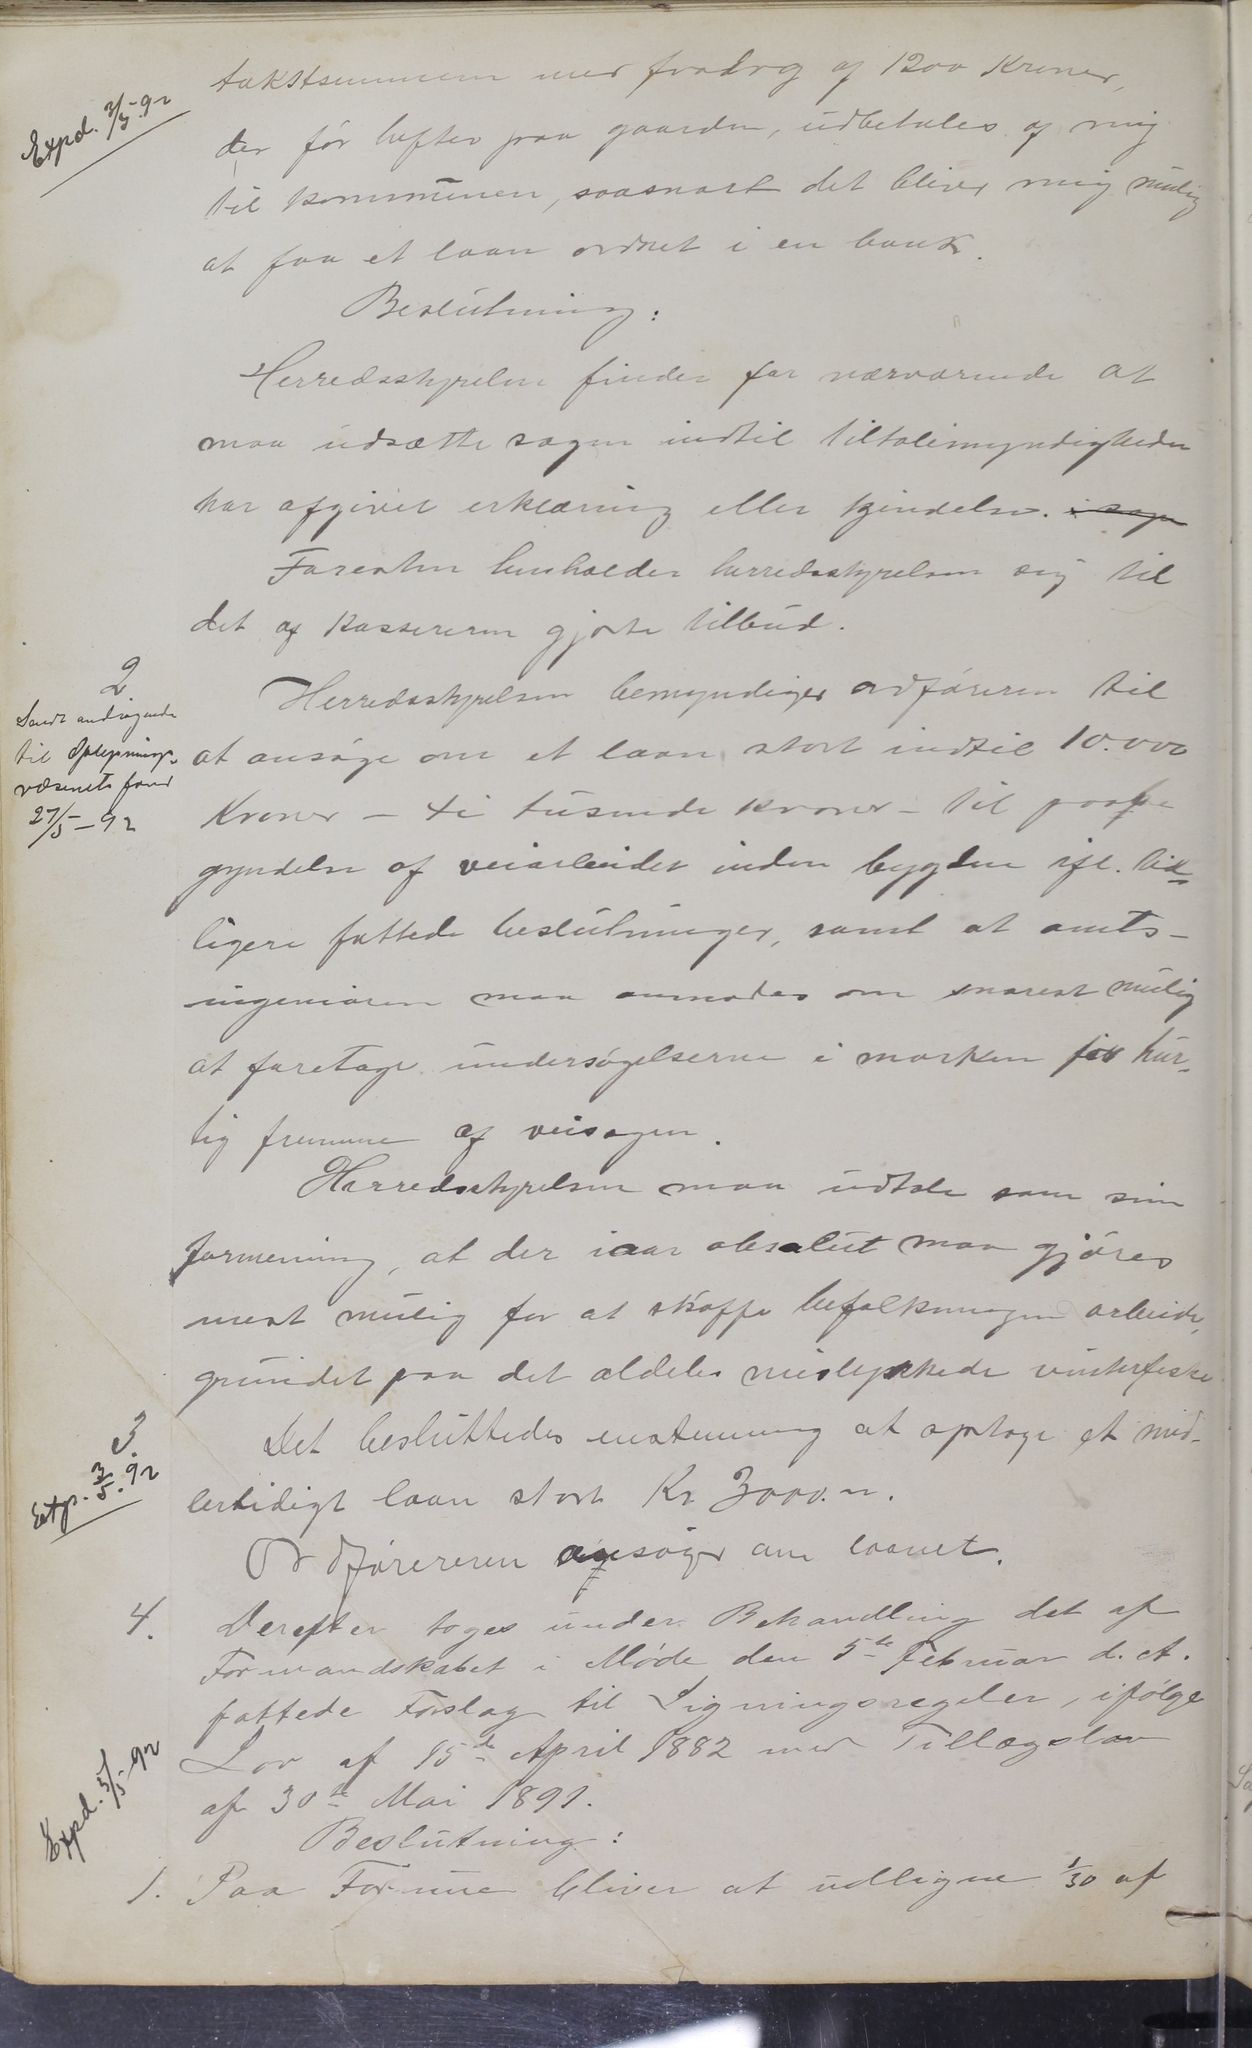 Expd. 3/5-92
takstsummen med fradrag af 1200 Kroner,
der før hefter paa gaarden, udbetales af mig
til kommunen, saasnart det bliver mig mulig
at faa et laan ordnet i en bank.
Beslutning:
Herredsstyrelsen finder for nærværende at
maa udsætte sagen indtil tiltalemyndigheden
har afgivet erklæring eller kjendelse. i sagen
Foresten henholder herredsstyrelsen sig til
det af kassereren gjorte tilbud.
2.
Sendt andragende
til Oplysnings-
væsenets fond
27/5-92
Herredsstyrelsen bemyndiger ordføreren til
at ansøge om et laan stort indtil 10.000
Kroner - ti tusende kroner - til paabe
gyndelse af veiarbeidet inden bygden ifl. tid=
ligere fattede beslutninger, samt at amts-
ingeniøren maa anmodes om snarest mulig
at foretage undersøgelserne i marken for hur-
tig fremme af veisagen.
Herredsstyrelsen maa udtale som sin
formening, at der iaar absolut maa gjøres
mest mulig for at skaffe befolkningen arbeide,
grundet paa det aldeles mislykkede vinterfiske
3.
Exp. 3/5.92
Det besluttedes enstemmig at optage et mid-
lertidigt laan stort Kr 3000.00.
Ordføreren ansøger om laanet.
4.
Derefter toges under Behandling det af
Formandskabet i Møde den 5te Februar d. A.
fattede Forslag til Ligningsregler, ifølge
Lov af 15de April 1882 med Tillægslov
af 30te Mai 1891.
Expd. 3/5-92
Beslutning:
1. Paa Formue bliver at udligne 1/30 af